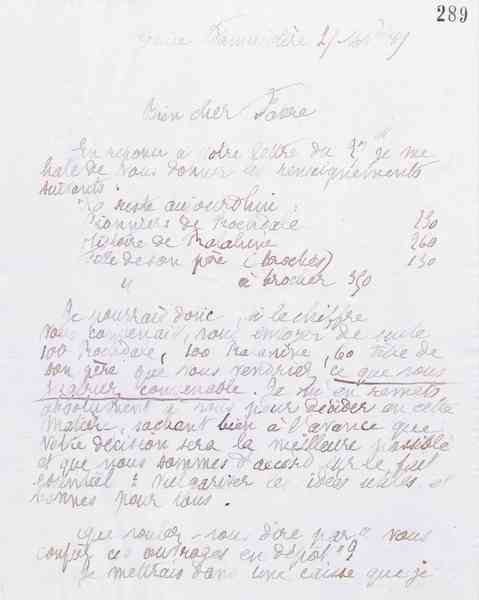 289
Guise Familistère 27
Bien cher Favre
En réponse à votre lettre du je me
hâte de vous donner les renseignements
suivants :
Il reste aujourd'hui :
Pionniers de Rochdale 230
Histoire de Ralahine 260
Fille de son père (brochés) 130
" à brocher 350
Je pourrais donc, si le chiffre
vous convenait, vous envoyer de suite
100 Rochdale, 100 Ralahine, 60 Fille de
son père que vous vendriez ce que vous
convenable. Je m'en remets
absolument à vous pour décider en cette
matière, sachant bien à l'avance que
votre décision sera la meilleure possible
et que nous sommes d'accord sur le but
essentiel : vulgariser les idées utiles et
bonnes pour tous.
Que voulez-vous dire par " vous
confier ces ouvrages en dépôt " ?
Je mettrais dans une caisse que je